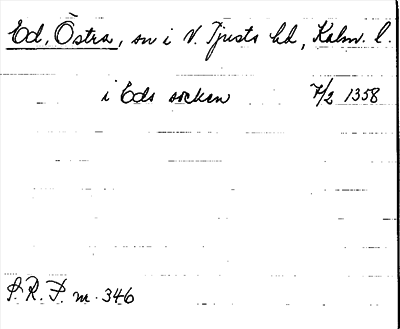 Ed, Östra, sn i N. Tjusts hd, Kalm. l.
i Eds socken 7/2 1358
S. R. P. nr. 346